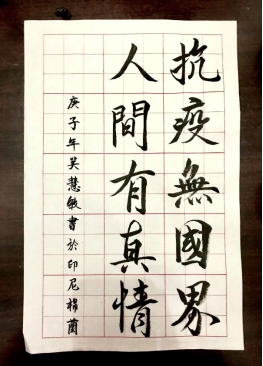 抗疫無國界
人間有真情
庚子年吳慧敏書於印尼棉蘭